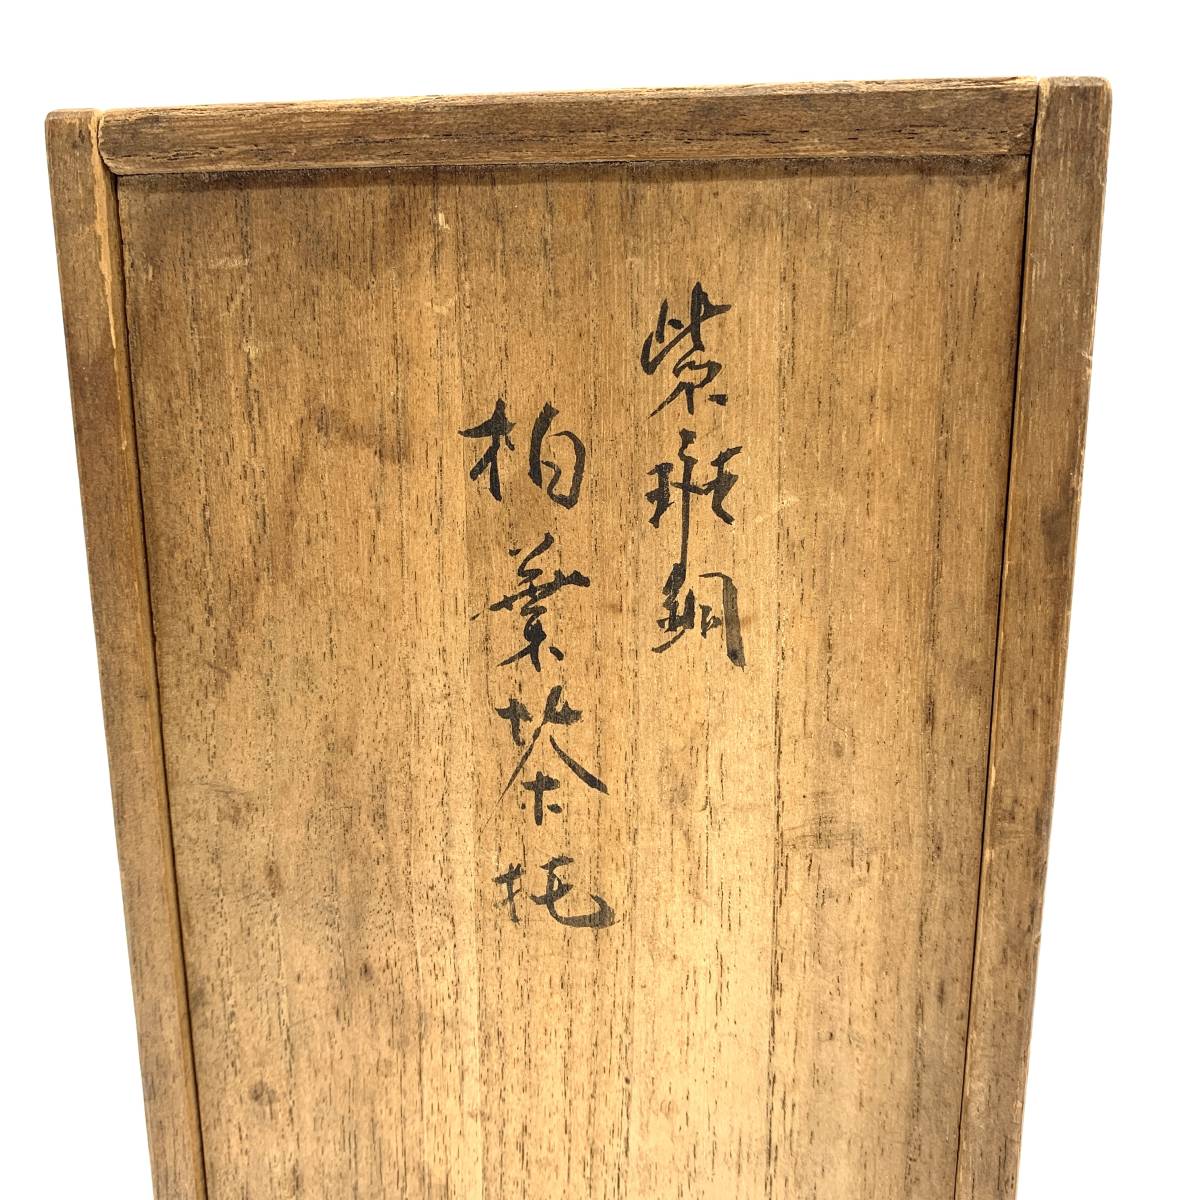 紫斑銅
柏葉茶托